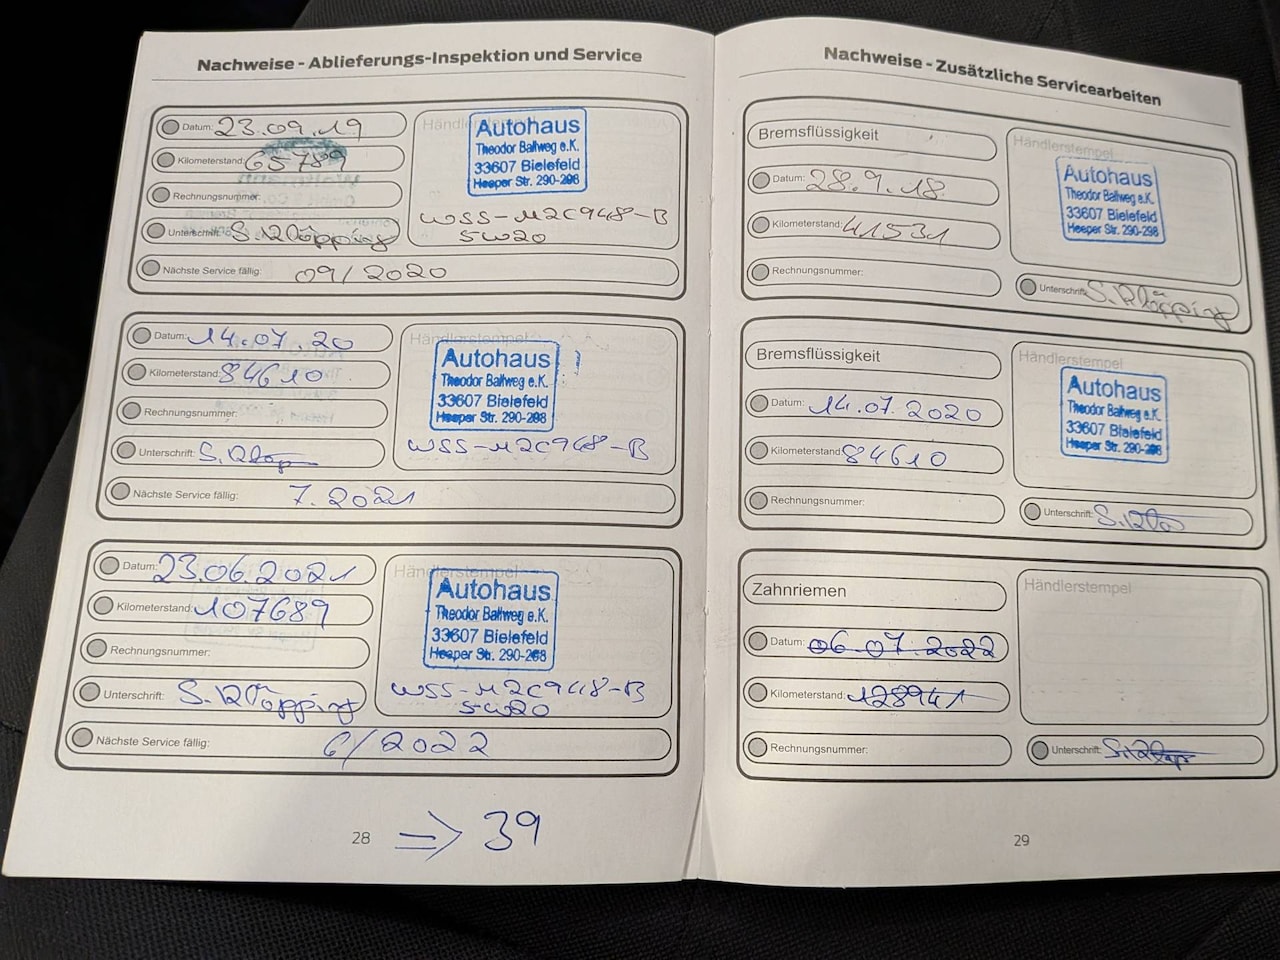 Nachweise - Ablieferungs-Inspektion und Service
Datum: 23.09.19
Kilometerstand: 65789
Rechnungsnummer:
Unterschrift: S. Klöpping
Händlerstempel
Autohaus
Theodor Ballweg e.K.
33607 Bielefeld
Heeper Str. 290-298
WSS-M2C948-B
5W20
Nächste Service fällig: 09/2020
Datum: 14.07.20
Kilometerstand: 84610
Rechnungsnummer:
Unterschrift:
Händlerstempel
Autohaus
Theodor Ballweg e.K.
33607 Bielefeld
Heeper Str. 290-298
WSS-M2C948-B
Nächste Service fällig: 7.2021
Datum: 23.06.2021
Kilometerstand: 107689
Rechnungsnummer:
Unterschrift: S. Klöpping
Händlerstempel
Autohaus
Theodor Ballweg e.K.
33607 Bielefeld
Heeper Str. 290-298
WSS-M2C948-B
5W20
Nächste Service fällig: 6/2022
28 => 39
Nachweise - Zusätzliche Servicearbeiten
Bremsflüssigkeit
Datum: 28.9.18
Kilometerstand: 41531
Rechnungsnummer:
Händlerstempel
Autohaus
Theodor Ballweg e.K.
33607 Bielefeld
Heeper Str. 290-298
Unterschrift: S. Klöpping
Bremsflüssigkeit
Datum: 14.07.2020
Kilometerstand: 84610
Rechnungsnummer:
Händlerstempel
Autohaus
Theodor Ballweg e.K.
33607 Bielefeld
Heeper Str. 290-298
Unterschrift:
Zahnriemen
Datum: 06.07.2022
Kilometerstand: 128941
Rechnungsnummer:
Händlerstempel
Unterschrift:
29